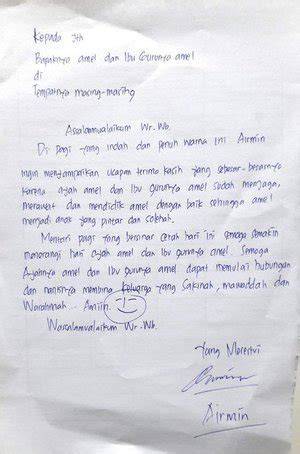 Kepada Yth
Bapaknya amel dan Ibu Gurunya amel
di
Tempatnya masing-masing
Assalamualaikum Wr. Wb.
Di pagi yang indah dan penuh warna ini Airmin
ingin menyampaikan ucapan terima kasih yang sebesar-besarnya
karena ayah amel dan Ibu Gurunya amel sudah menjaga,
merawat dan mendidik amel dengan baik sehingga amel
menjadi anak yang pintar dan solehah.
Mentari pagi yang bersinar cerah hari ini semoga semakin
menerangi hari ayah amel dan Ibu gurunya amel. Semoga
Ayahnya amel dan Ibu gurunya amel dapat memulai hubungan
dan nantinya membina keluarga yang sakinah, mawaddah dan
Warahmah... Amiin.
Wassalamualaikum Wr. Wb.
Yang Merestui
Airmin